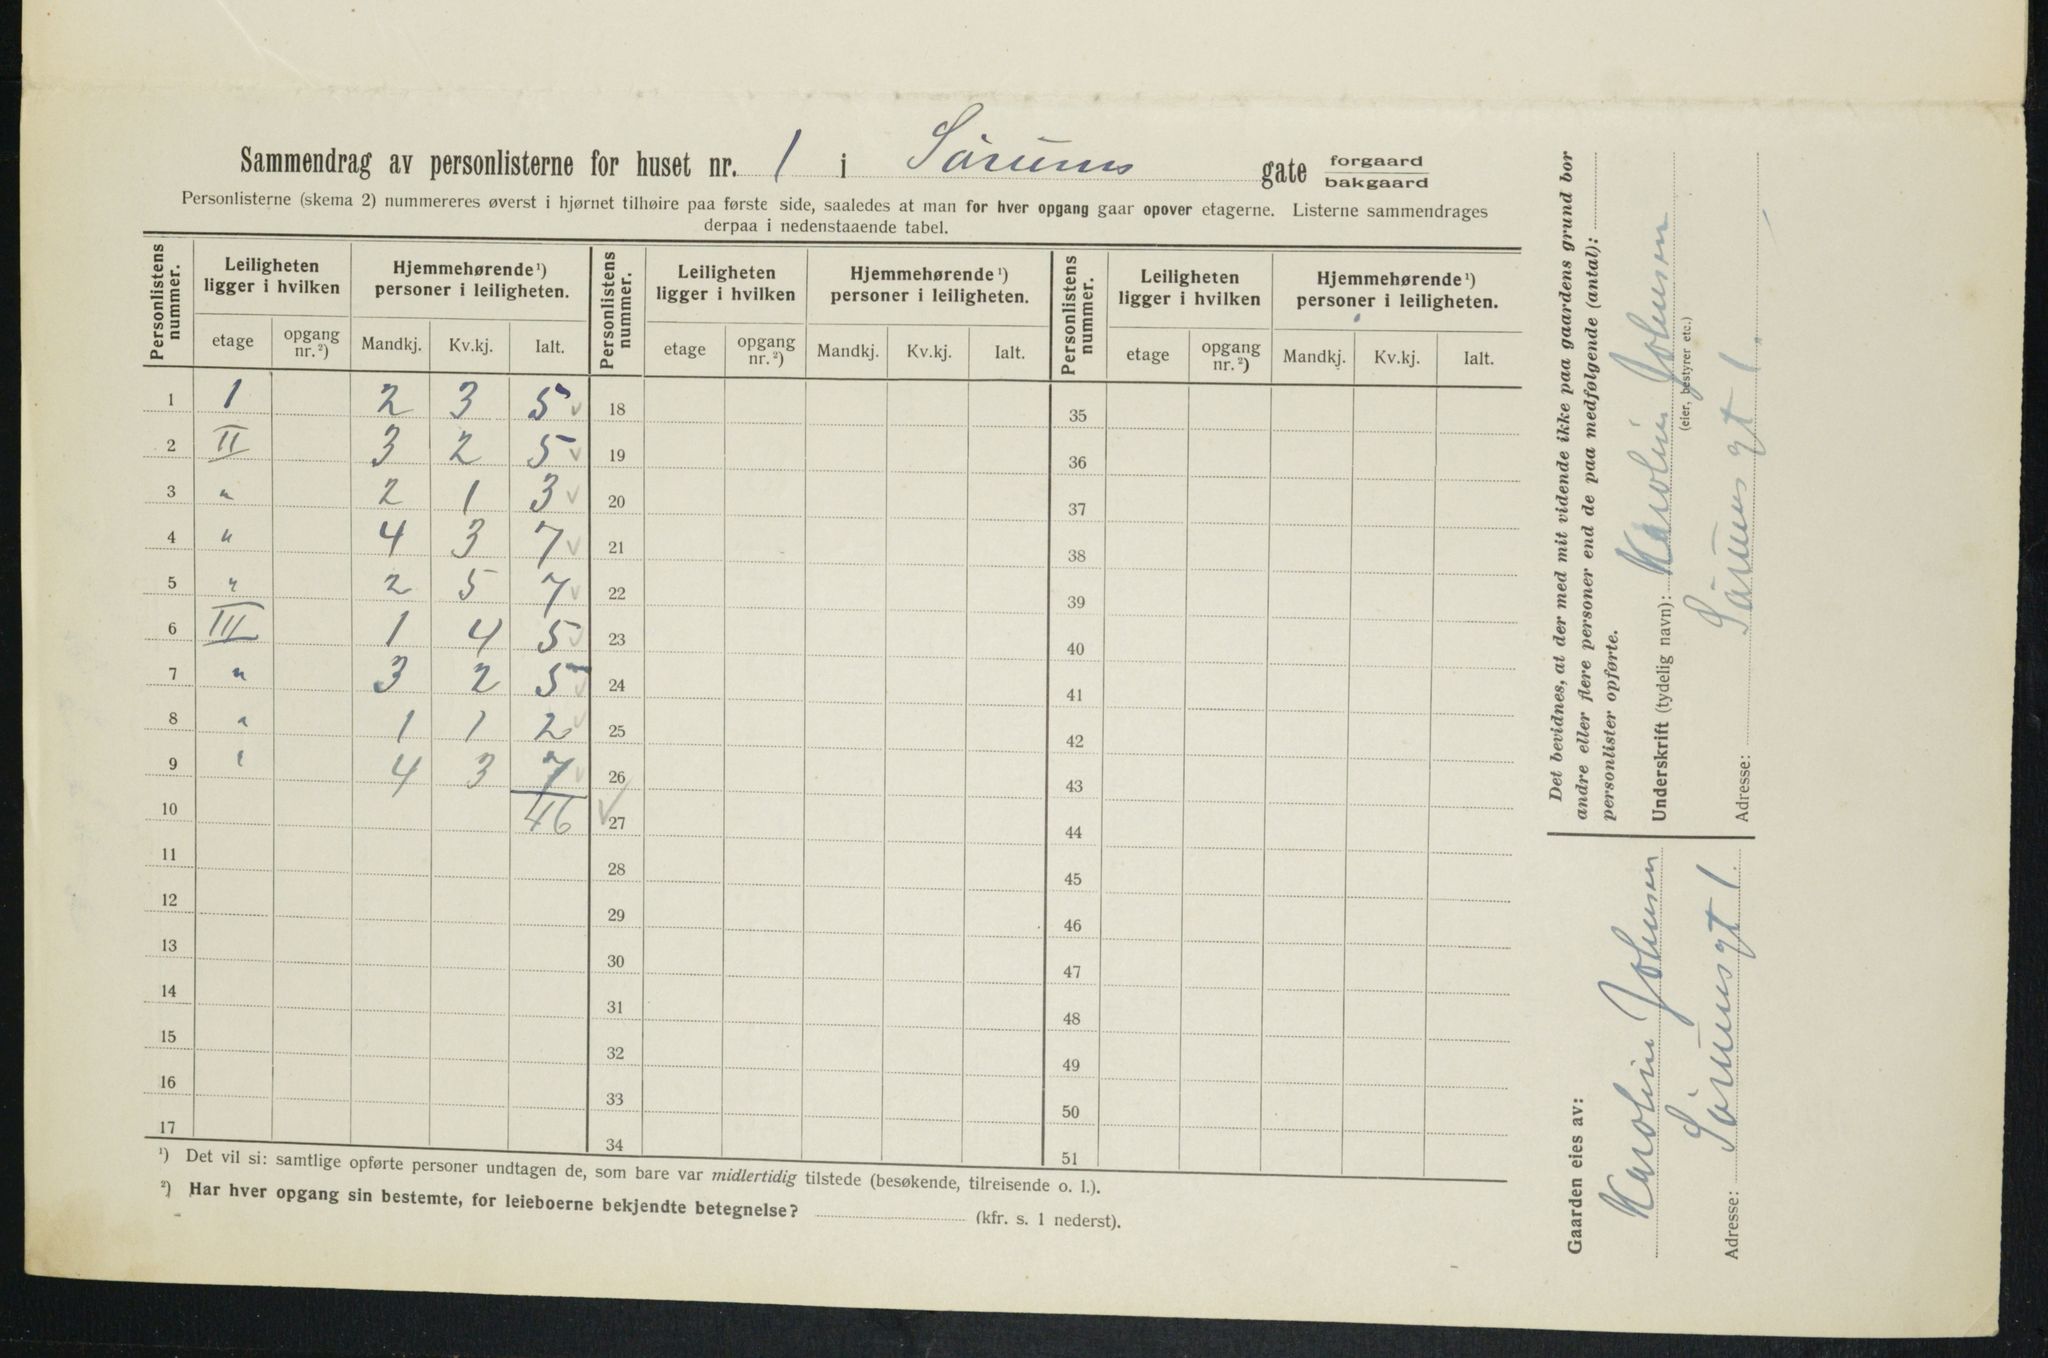 Sammendrag av personlisterne for huset nr. 1 i Sörums gate forgaard bakgaard
Personlisterne (skema 2) nummereres øverst i hjørnet tilhøire paa første side, saaledes at man for hver opgang gaar opover etagerne. Listerne sammendrages
derpaa i nedenstaaende tabel.
Personlistens nummer. Leiligheten ligger i hvilken Hjemmehørende ¹) personer i leiligheten. Personlistens nummer. Leiligheten ligger i hvilken Hjemmehørende ¹) personer i leiligheten. Personlistens nummer. Leiligheten ligger i hvilken Hjemmehørende ¹) personer i leiligheten.
etage opgang nr. ²) Mandkj. Kv.kj. Ialt. etage opgang nr. ²) Mandkj. Kv.kj. Ialt. etage opgang nr. ²) Mandkj. Kv.kj. Ialt.
1 1 2 3 5 ✓ 18 35
2 II 3 2 5 ✓ 19 36
3 " 2 1 3 ✓ 20 37
4 " 4 3 7 ✓ 21 38
5 " 2 5 7 ✓ 22 39
6 III 1 4 5 ✓ 23 40
7 " 3 2 5 ✓ 24 41
8 " 1 1 2 ✓ 25 42
9 " 4 3 7 ✓ 26 43
10 46 ✓ 27 44
11 28 45
12 29 46
13 30 47
14 31 48
15 32 49
16 33 50
17 34 51
¹) Det vil si: samtlige opførte personer undtagen de, som bare var midlertidig tilstede (besøkende, tilreisende o. l.).
²) Har hver opgang sin bestemte, for leieboerne bekjendte betegnelse? (kfr. s. 1 nederst).
Det bevidnes, at der med mit vidende ikke paa gaardens grund bor
andre eller flere personer end de paa medfølgende (antal):
personlister opførte.
Underskrift (tydelig navn): Karolin Johnsen
(eier, bestyrer etc.)
Adresse: Sörums gt 1.
Gaarden eies av:
Karolin Johnsen
Adresse: Sörumsgt 1.